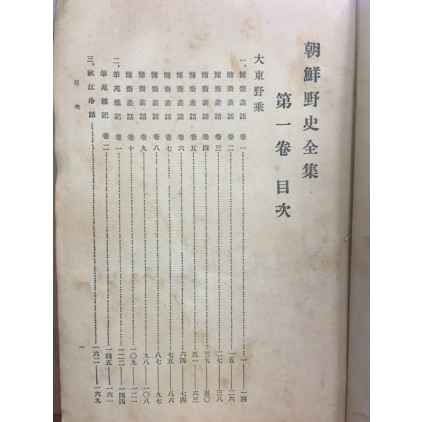 朝鮮野史全集
第一卷 目次
大東野乘
一、慵齋叢話 卷一……一—一四
慵齋叢話 卷二……一五—二六
慵齋叢話 卷三……二七—三八
慵齋叢話 卷四……三九—五〇
慵齋叢話 卷五……五一—六三
慵齋叢話 卷六……六四—七四
慵齋叢話 卷七……七五—八六
慵齋叢話 卷八……八七—九七
慵齋叢話 卷九……九八—一〇八
慵齋叢話 卷十……一〇九—一二一
二、筆苑雜記 卷一……一二二—一四四
筆苑雜記 卷二……一四五—一六一
三、秋江冷話……一六二—一六九
目次
一